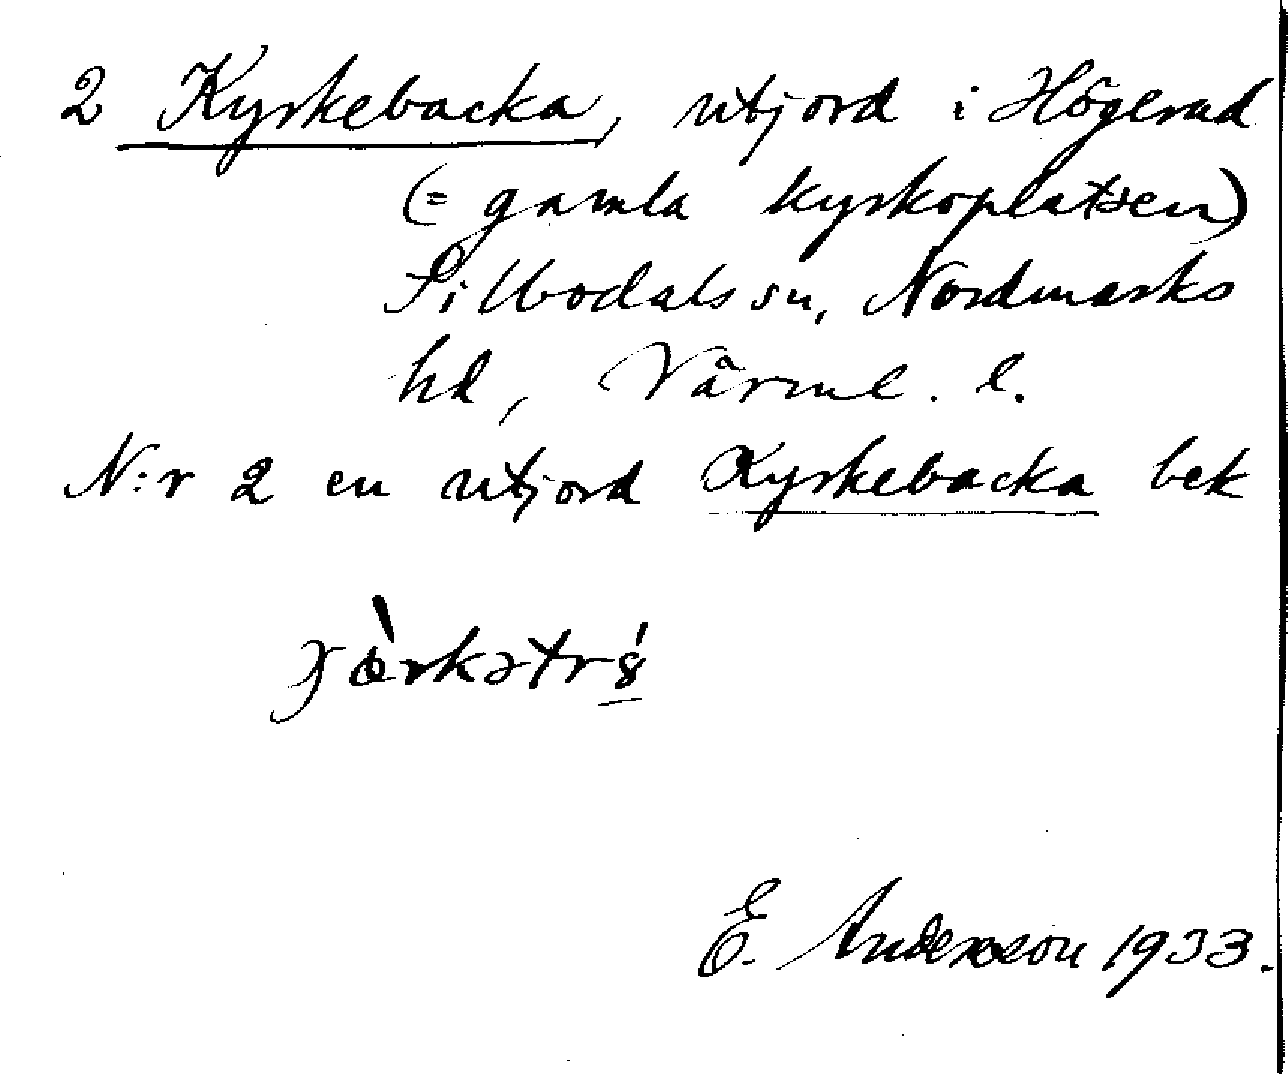 2 Kyrkebacka, utjord i Högerud
(= gamla kyrkoplatsen)
Silbodals sn, Nordmarks
hd, Värml. l.
N:r 2 en utjord Kyrkebacka bek
E. Andersson 1933.